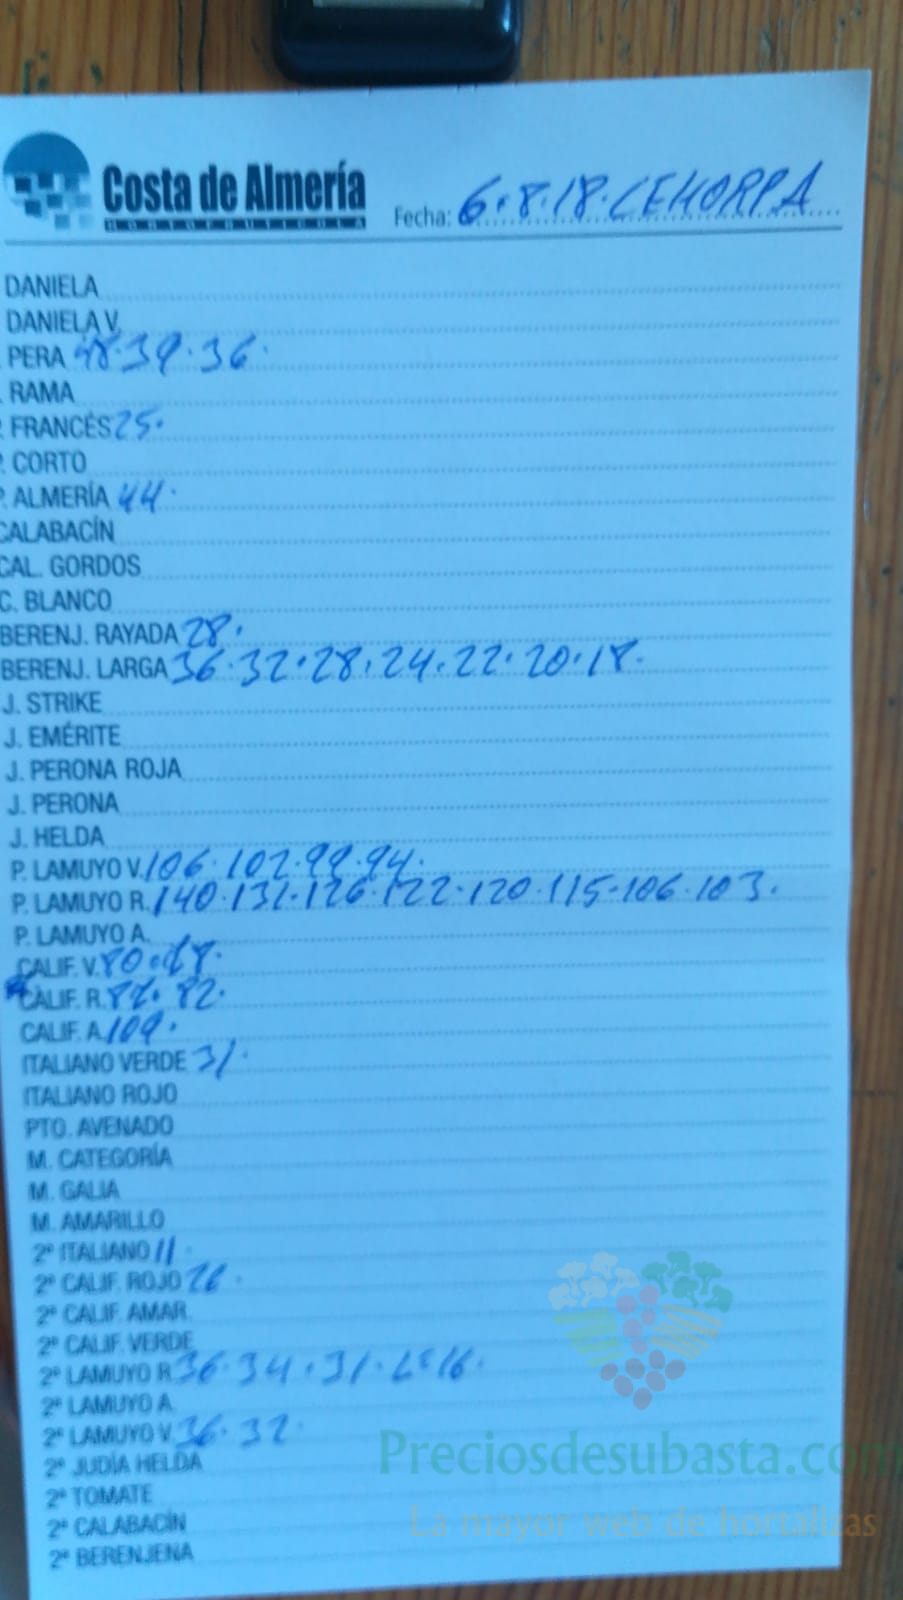 Costa de Almería
HORTOFRUTICOLA
Fecha: 6.8.18. CEHORPA
DANIELA
DANIELA V.
PERA 48.39.36.
RAMA
FRANCÉS 25.
P. CORTO
P. ALMERÍA 44.
CALABACÍN
CAL. GORDOS
C. BLANCO
BERENJ. RAYADA 28.
BERENJ. LARGA 36.32.28.24.22.20.18.
J. STRIKE
J. EMÉRITE
J. PERONA ROJA
J. PERONA
J. HELDA
P. LAMUYO V. 106.102.99.94.
P. LAMUYO R. 140.131.126.122.120.115.106.103.
P. LAMUYO A.
CALIF. V. 80.
CALIF. R. 82.
CALIF. A. 109.
ITALIANO VERDE 31.
ITALIANO ROJO
PTO. AVENADO
M. CATEGORÍA
M. GALIA
M. AMARILLO
2ª ITALIANO 11
2ª CALIF. ROJO 26.
2ª CALIF. AMAR.
2ª CALIF. VERDE
2ª LAMUYO R. 36.34.31. 16.
2ª LAMUYO A.
2ª LAMUYO V. 36.32.
2ª JUDÍA HELDA
2ª TOMATE
2ª CALABACÍN
2ª BERENJENA
Preciosdesubasta.com
La mayor web de hortalizas